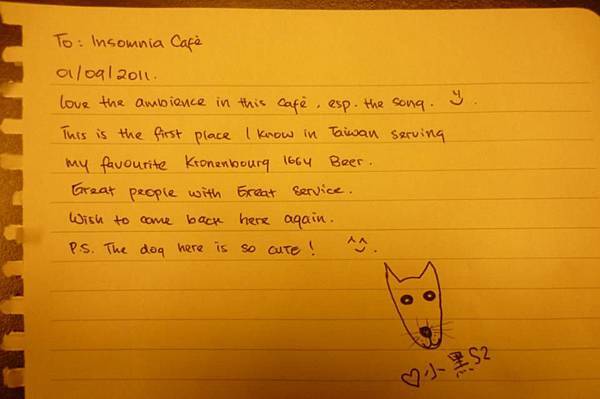 To: Insomnia Café
01/09/2011.
Love the ambience in this café, esp. the song.
This is the first place I know in Taiwan serving
my favourite Kronenbourg 1664 Beer.
Great people with Great service.
Wish to come back here again.
P.S. The dog here is so cute! ^^
♡小黑S2